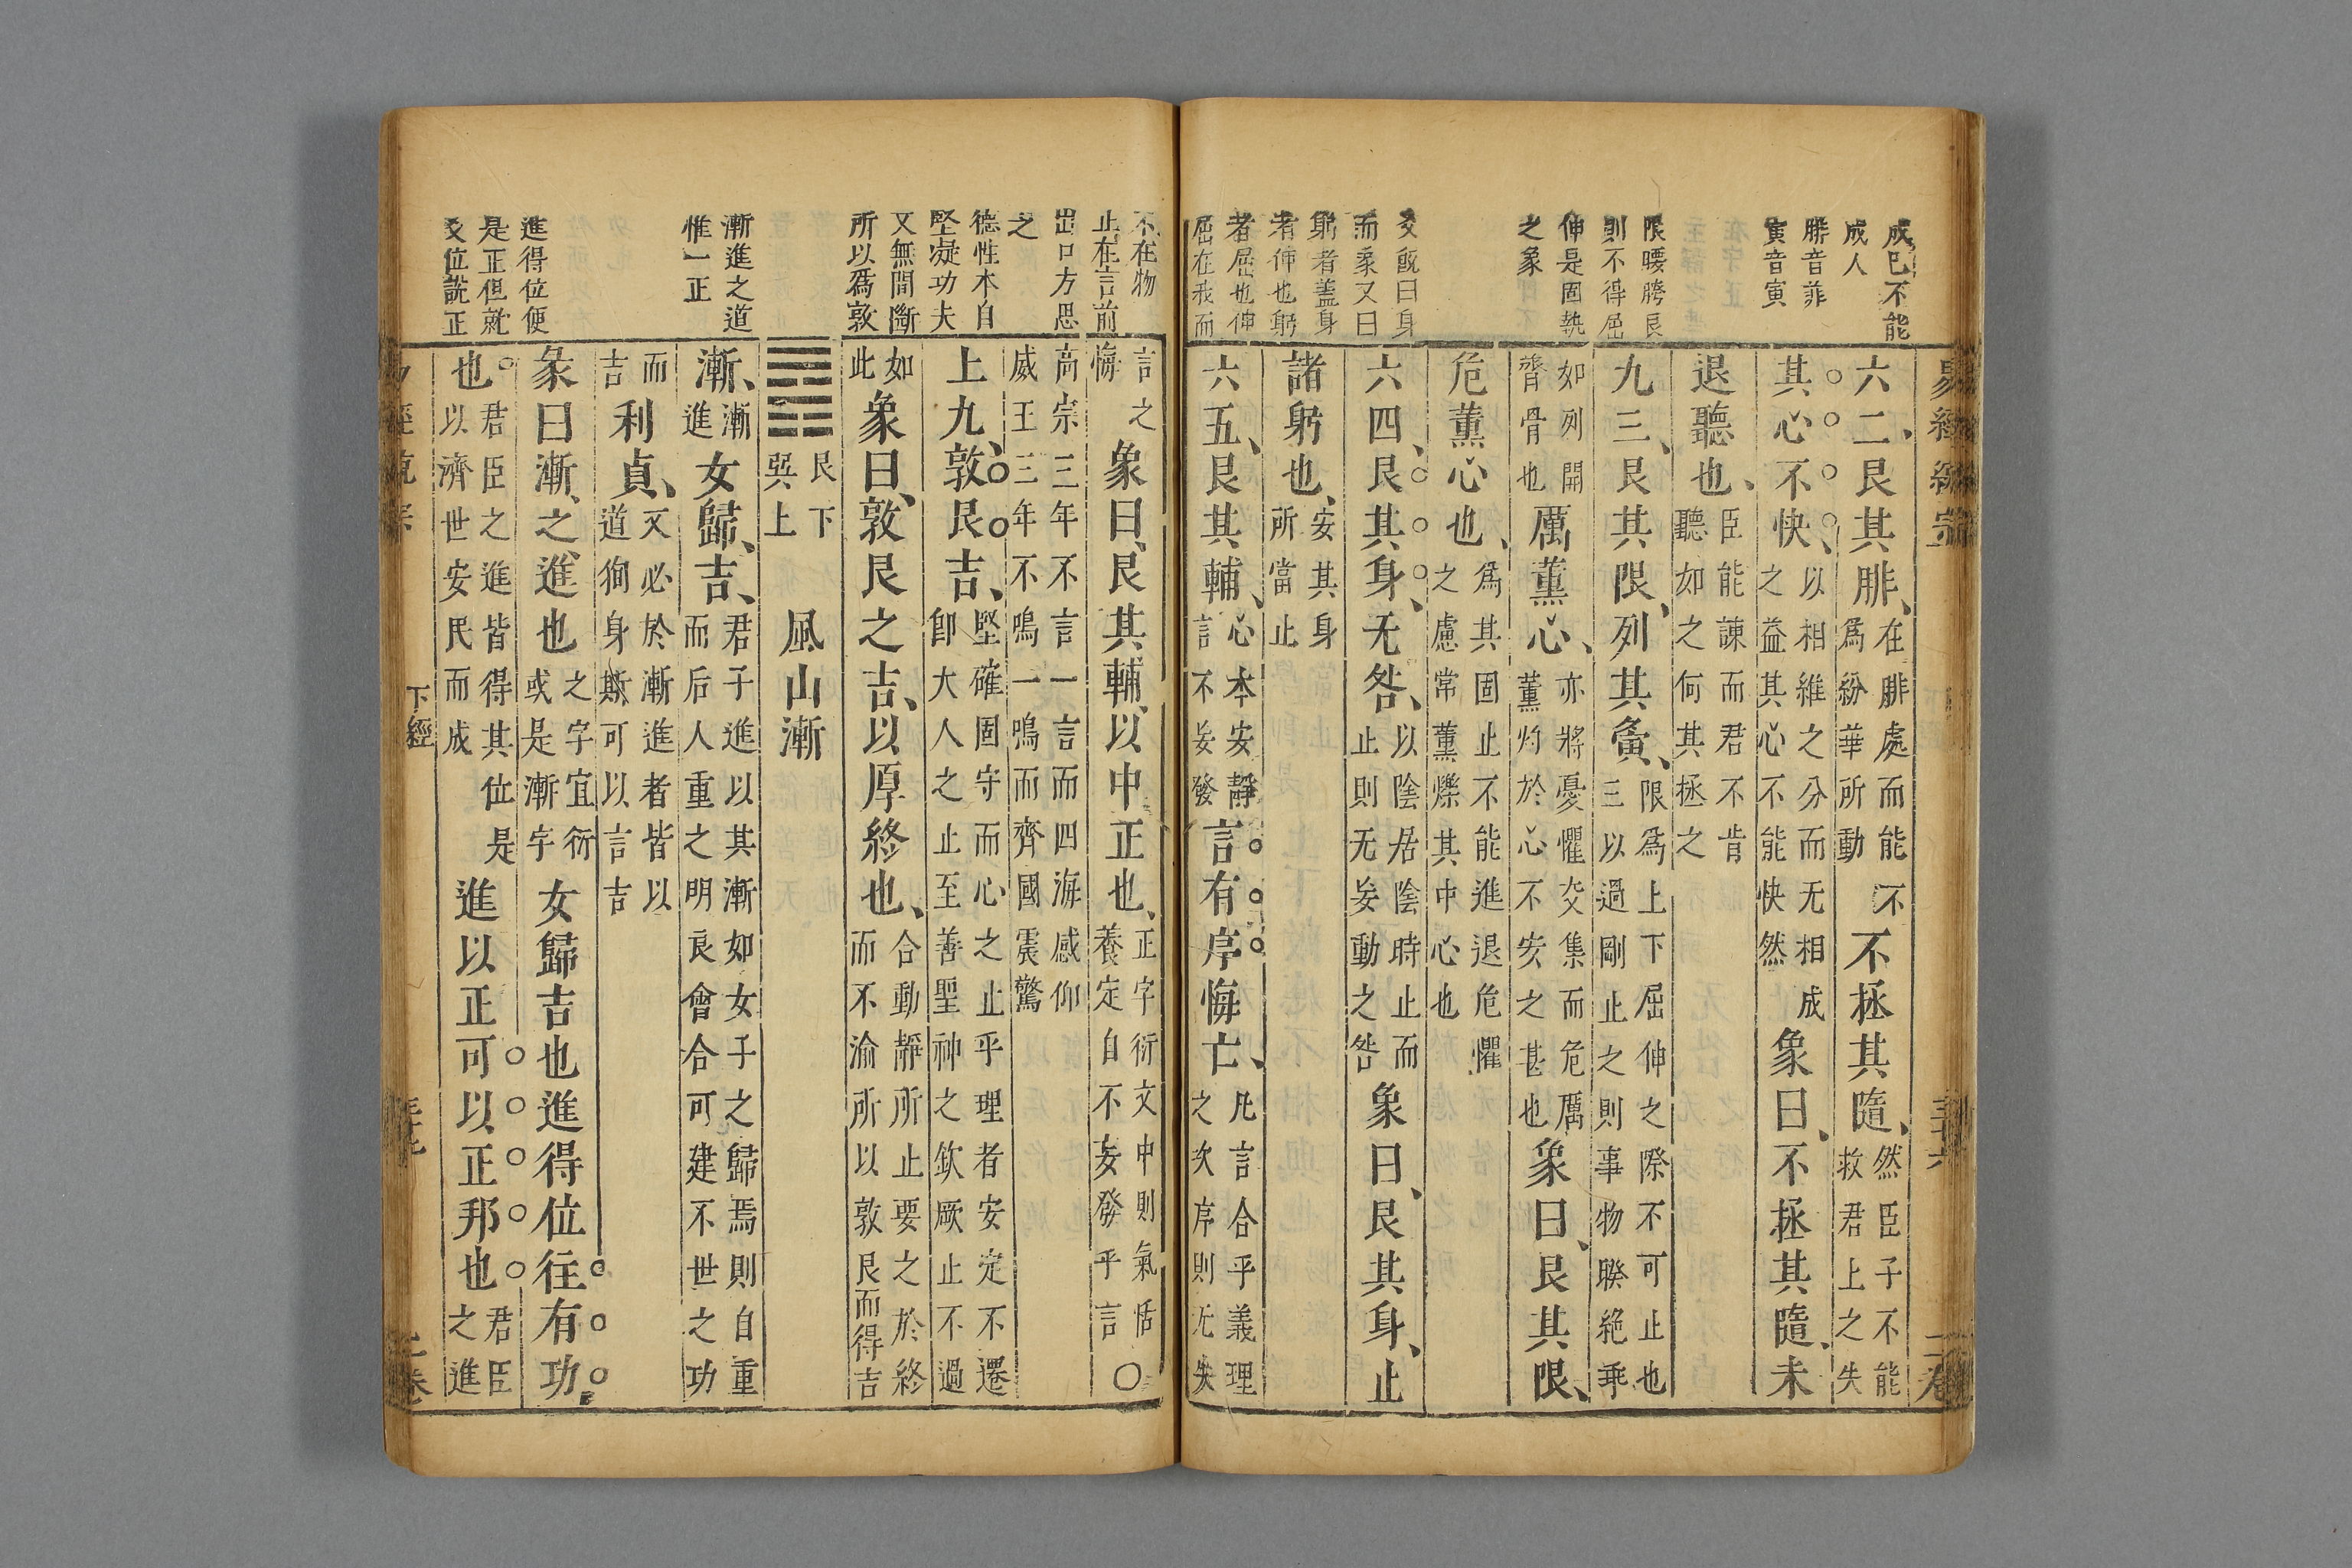 成已不能
成人
腓音菲
寅音寅
限腰胯艮
則不得屈
伸是固執
之象
爻旣曰身
而象又曰
躬者蓋身
者伸也躬
者屈也伸
屈在我而
易經
六二、艮其腓、在腓處而能不
爲紛華所動
不拯其隨、然臣子不能
救君上之失
其心不快、以相維之分而无相成
之益其心不能快然
象曰、不拯其隨、未
退聽也、臣能諫而君不肯
聽如之何其拯之
九三、艮其限、列其夤、限爲上下屈伸之際不可止也
三以過剛止之則事物睽絶乖
如列開
膂骨也
厲薰心、亦將憂懼交集而危厲
薰灼於心不安之甚也
象曰、艮其限、
危薰心也、爲其固止不能進退危懼
之慮常薰爍其中心也
六四、艮其身、无咎、以陰居陰時止而
止則无妄動之咎
象曰、艮其身、止
諸躬也、安其身
所當止
六五、艮其輔、心本安靜
言不妄發
言有序悔亡、凡言合乎義理
之次序則无失
三十六
二卷
不在物
止在言前
出口方思
之
德性本自
堅凝功夫
又無間斷
所以爲敦
漸進之道
惟一正
進得位便
是正但就
爻位説正
言之
悔
象曰、艮其輔、以中正也、正字衍文中則氣恬
養定自不妄發乎言
高宗三年不言一言而四海感仰
威王三年不鳴一鳴而齊國震驚
上九、敦艮、吉、堅確固守而心之止乎理者安定不遷
卽大人之止至善聖神之欽厥止不過
如
此
象曰、敦艮之吉、以厚終也、合動靜所止要之於終
而不渝所以敦艮而得吉
䷴艮下
巽上
風山漸
漸、漸
進
女歸、吉、君子進以其漸如女子之歸焉則自重
而后人重之明良會合可建不世之功
而
吉
利貞、又必於漸進者皆以
道狥身斯可以言吉
彖曰漸、之進也之字宜衍
或是漸字
女歸吉也進得位往有功
也君臣之進皆得其位是
以濟世安民而成
進以正可以正邦也君臣
之進
下經